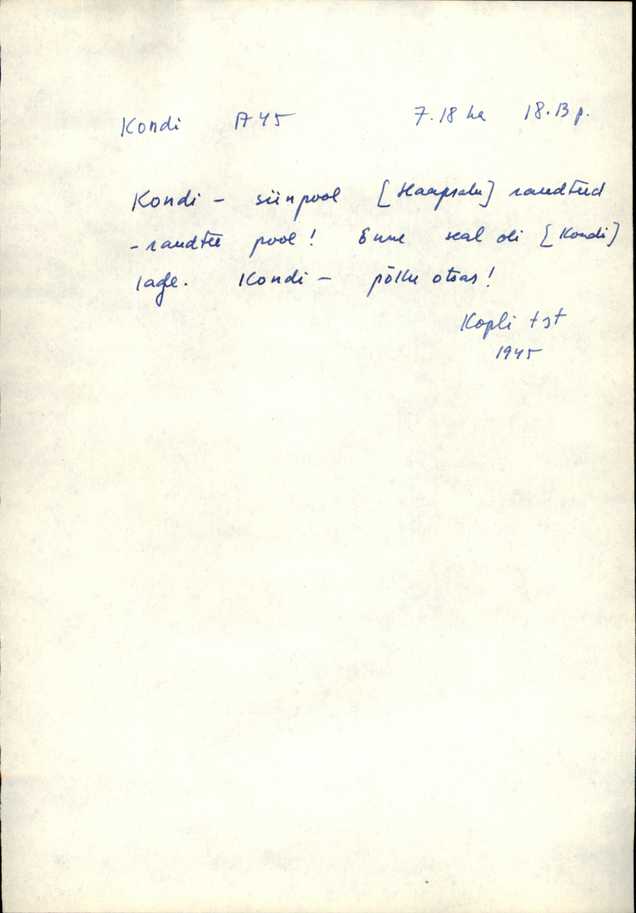 Kondi A45 7.18 ha 18.13 p.
Kondi – siinpool [Haapsalu] raudteed
- raudtee pool! Enne seal oli [Kondi]
lage. Kondi – põllu otsas!
Kopli tst
1945